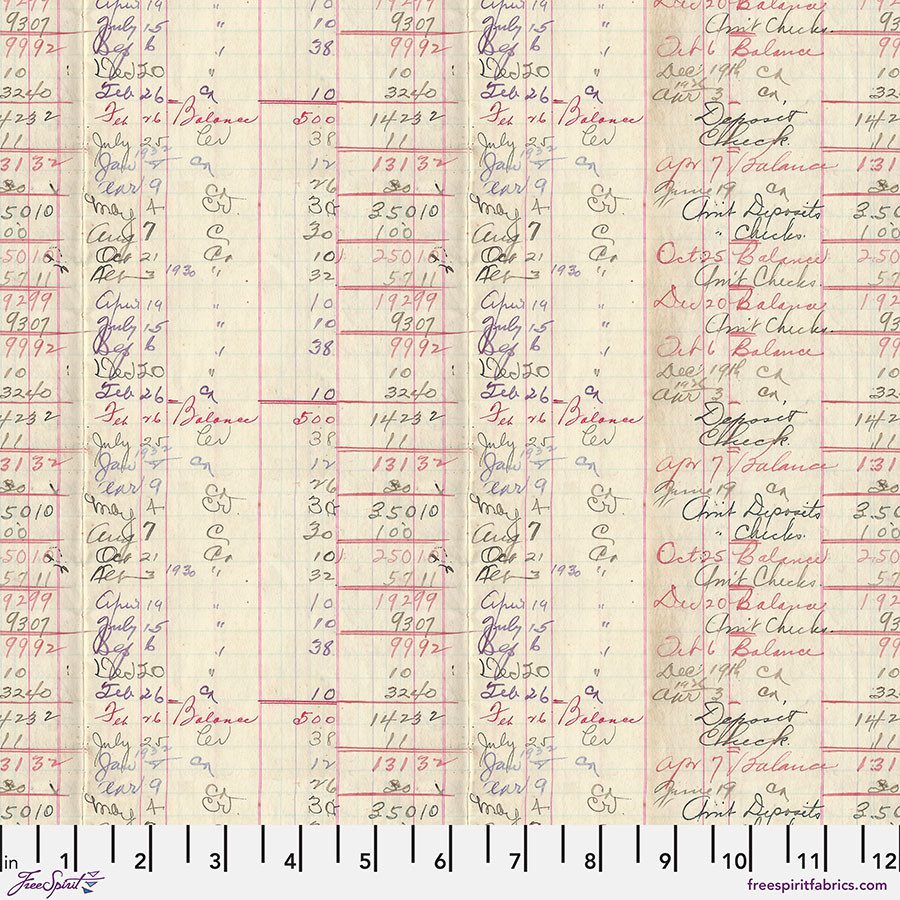 9307 July 15 " 10 9307 July 15 " Am't Checks.
9992 Sep 6 " 38 9992 Sep 6 " Oct 6 Balance 99
10 Dec 20 " 10 Dec 20 " Dec 19th Cr 10
3240 Feb 26 Cr 10 3240 Feb 26 Cr 1926 Apr 3 Cr, 32
4232 Feb 26 Balance 500 14232 Feb 26 Balance Deposit 142
11 July 25 38 11 July 25 Check. 11
3132 Jan 1932 Cr 12 13132 Jan 1932 Cr Apr 7 Balance 131
9 26 30. 9 June 19 Cr
5010 May 4 Cr 30 35010 May 4 Cr Am't Deposits 350
00 Aug 7 C 30 100 Aug 7 C " Checks 100
5010 Oct 21 Cr 10 25010 Oct 21 Cr Oct 25 Balance 250
5711 3 1930 " 32 5711 3 1930 " Am't Checks 57
9299 April 19 " 10 19299 April 19 " Dec 20 Balance 192
9307 July 15 " 10 9307 July 15 " Am't Checks. 93
9992 Sep 6 " 38 9992 Sep 6 " Oct 6 Balance 99
10 Dec 20 " 10 Dec 20 " Dec 19th Cr 10
3240 Feb 26 Cr 10 3240 Feb 26 Cr 1926 Apr 3 Cr, 32
4232 Feb 26 Balance 500 14232 Feb 26 Balance Deposit 142
11 July 25 38 11 July 25 Check. 11
3132 Jan 1932 Cr 12 13132 Jan 1932 Cr Apr 7 Balance 131
9 26 30. 9 June 19 Cr
5010 May 4 Cr 30 35010 May 4 Cr Am't Deposits 350
00 Aug 7 C 30 100 Aug 7 C " Checks 100
5010 Oct 21 Cr 10 25010 Oct 21 Cr Oct 25 Balance 250
5711 3 1930 " 32 5711 3 1930 " Am't Checks 57
9299 April 19 " 10 19299 April 19 " Dec 20 Balance 192
9307 July 15 " 10 9307 July 15 " Am't Checks. 93
9992 Sep 6 " 38 9992 Sep 6 " Oct 6 Balance 99
10 Dec 20 " 10 Dec 20 " Dec 19th Cr 10
3240 Feb 26 Cr 10 3240 Feb 26 Cr 1926 Apr 3 Cr, 32
4232 Feb 26 Balance 500 14232 Feb 26 Balance Deposit 142
11 July 25 38 11 July 25 Check. 11
3132 Jan 1932 Cr 12 13132 Jan 1932 Cr Apr 7 Balance 131
9 26 30. 9 June 19 Cr
5010 May 4 Cr 30 35010 May 4 Cr Am't Deposits 350
in 1 2 3 4 5 6 7 8 9 10 11 12
FreeSpirit freespiritfabrics.com